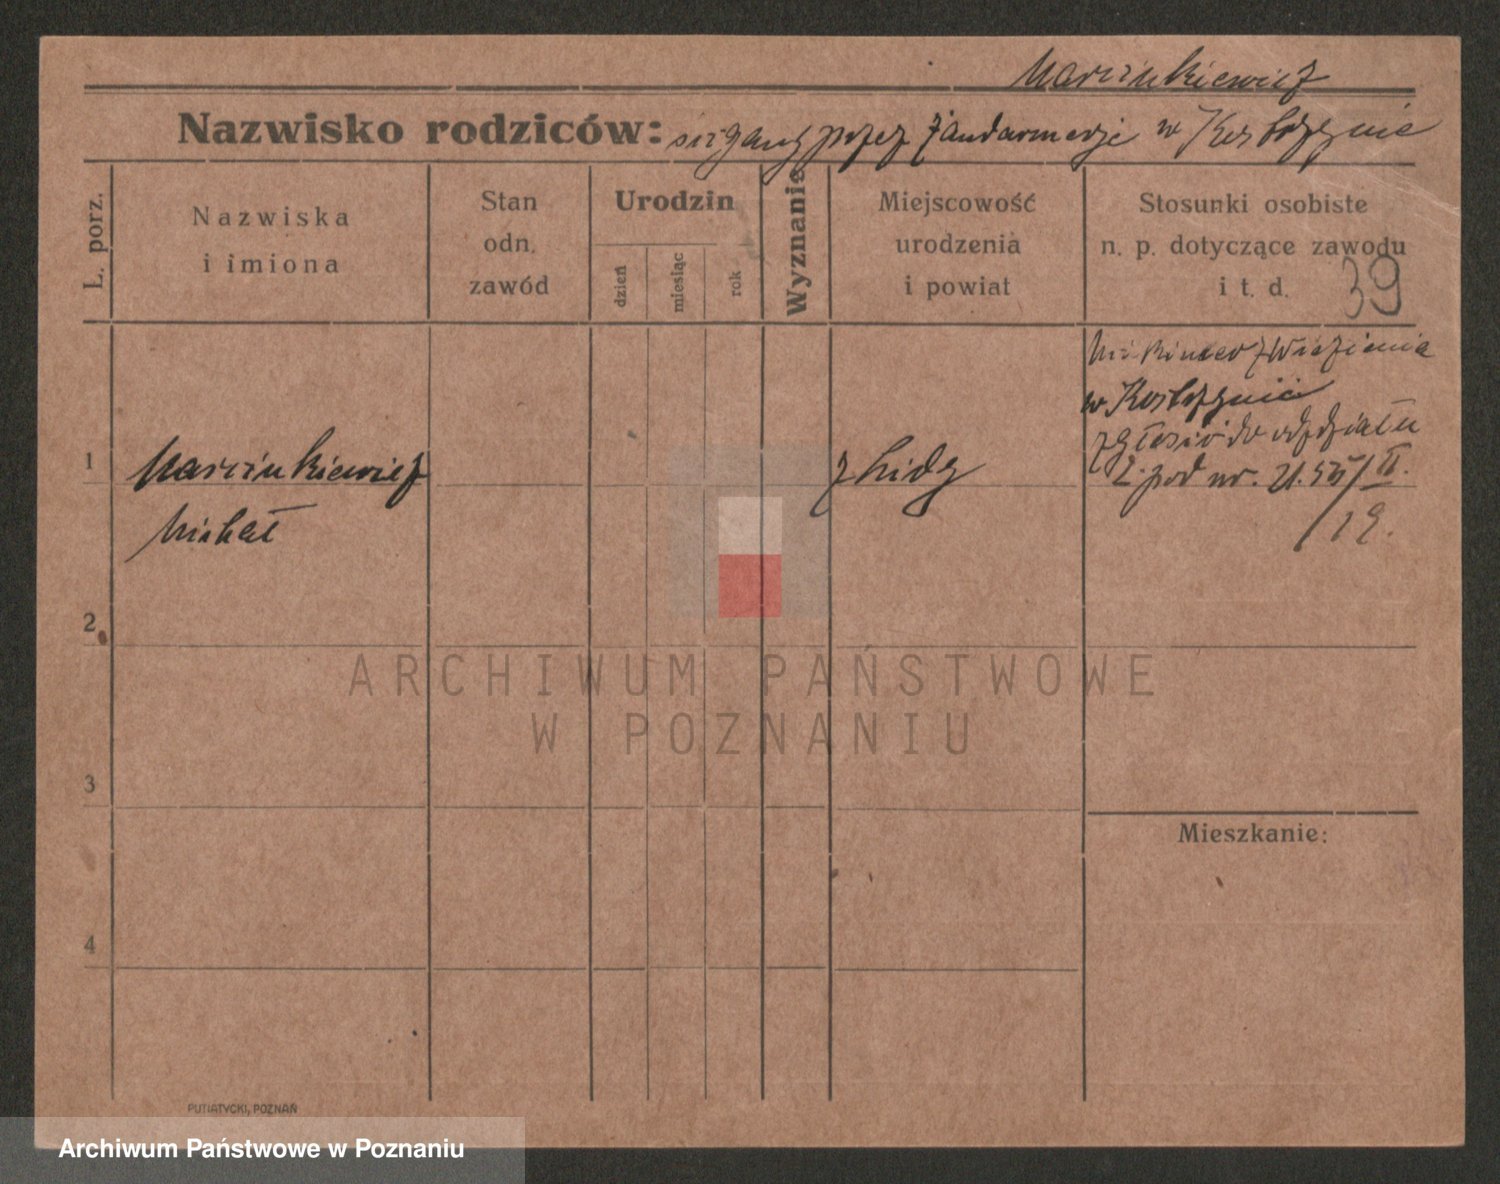 Marcinkiewicz
Nazwisko rodziców: ścigany przez żandarmerje w Kostrzynie
L. porz.
Nazwiska
i imiona
Stan
odn.
zawód
Urodzin
dzień
miesiąc
rok
Wyznanie
Miejscowość
urodzenia
i powiat
Stosunki osobiste
n. p. dotyczące zawodu
i t. d.
39
z więzienia
w Kostrzynie
zgłosić do oddziału
2. pod nr.
/19.
1
Marcinkiewicz
Michał
2
3
4
Mieszkanie:
ARCHIWUM PAŃSTWOWE
W POZNANIU
PUTIATYCKI, POZNAŃ
Archiwum Państwowe w Poznaniu